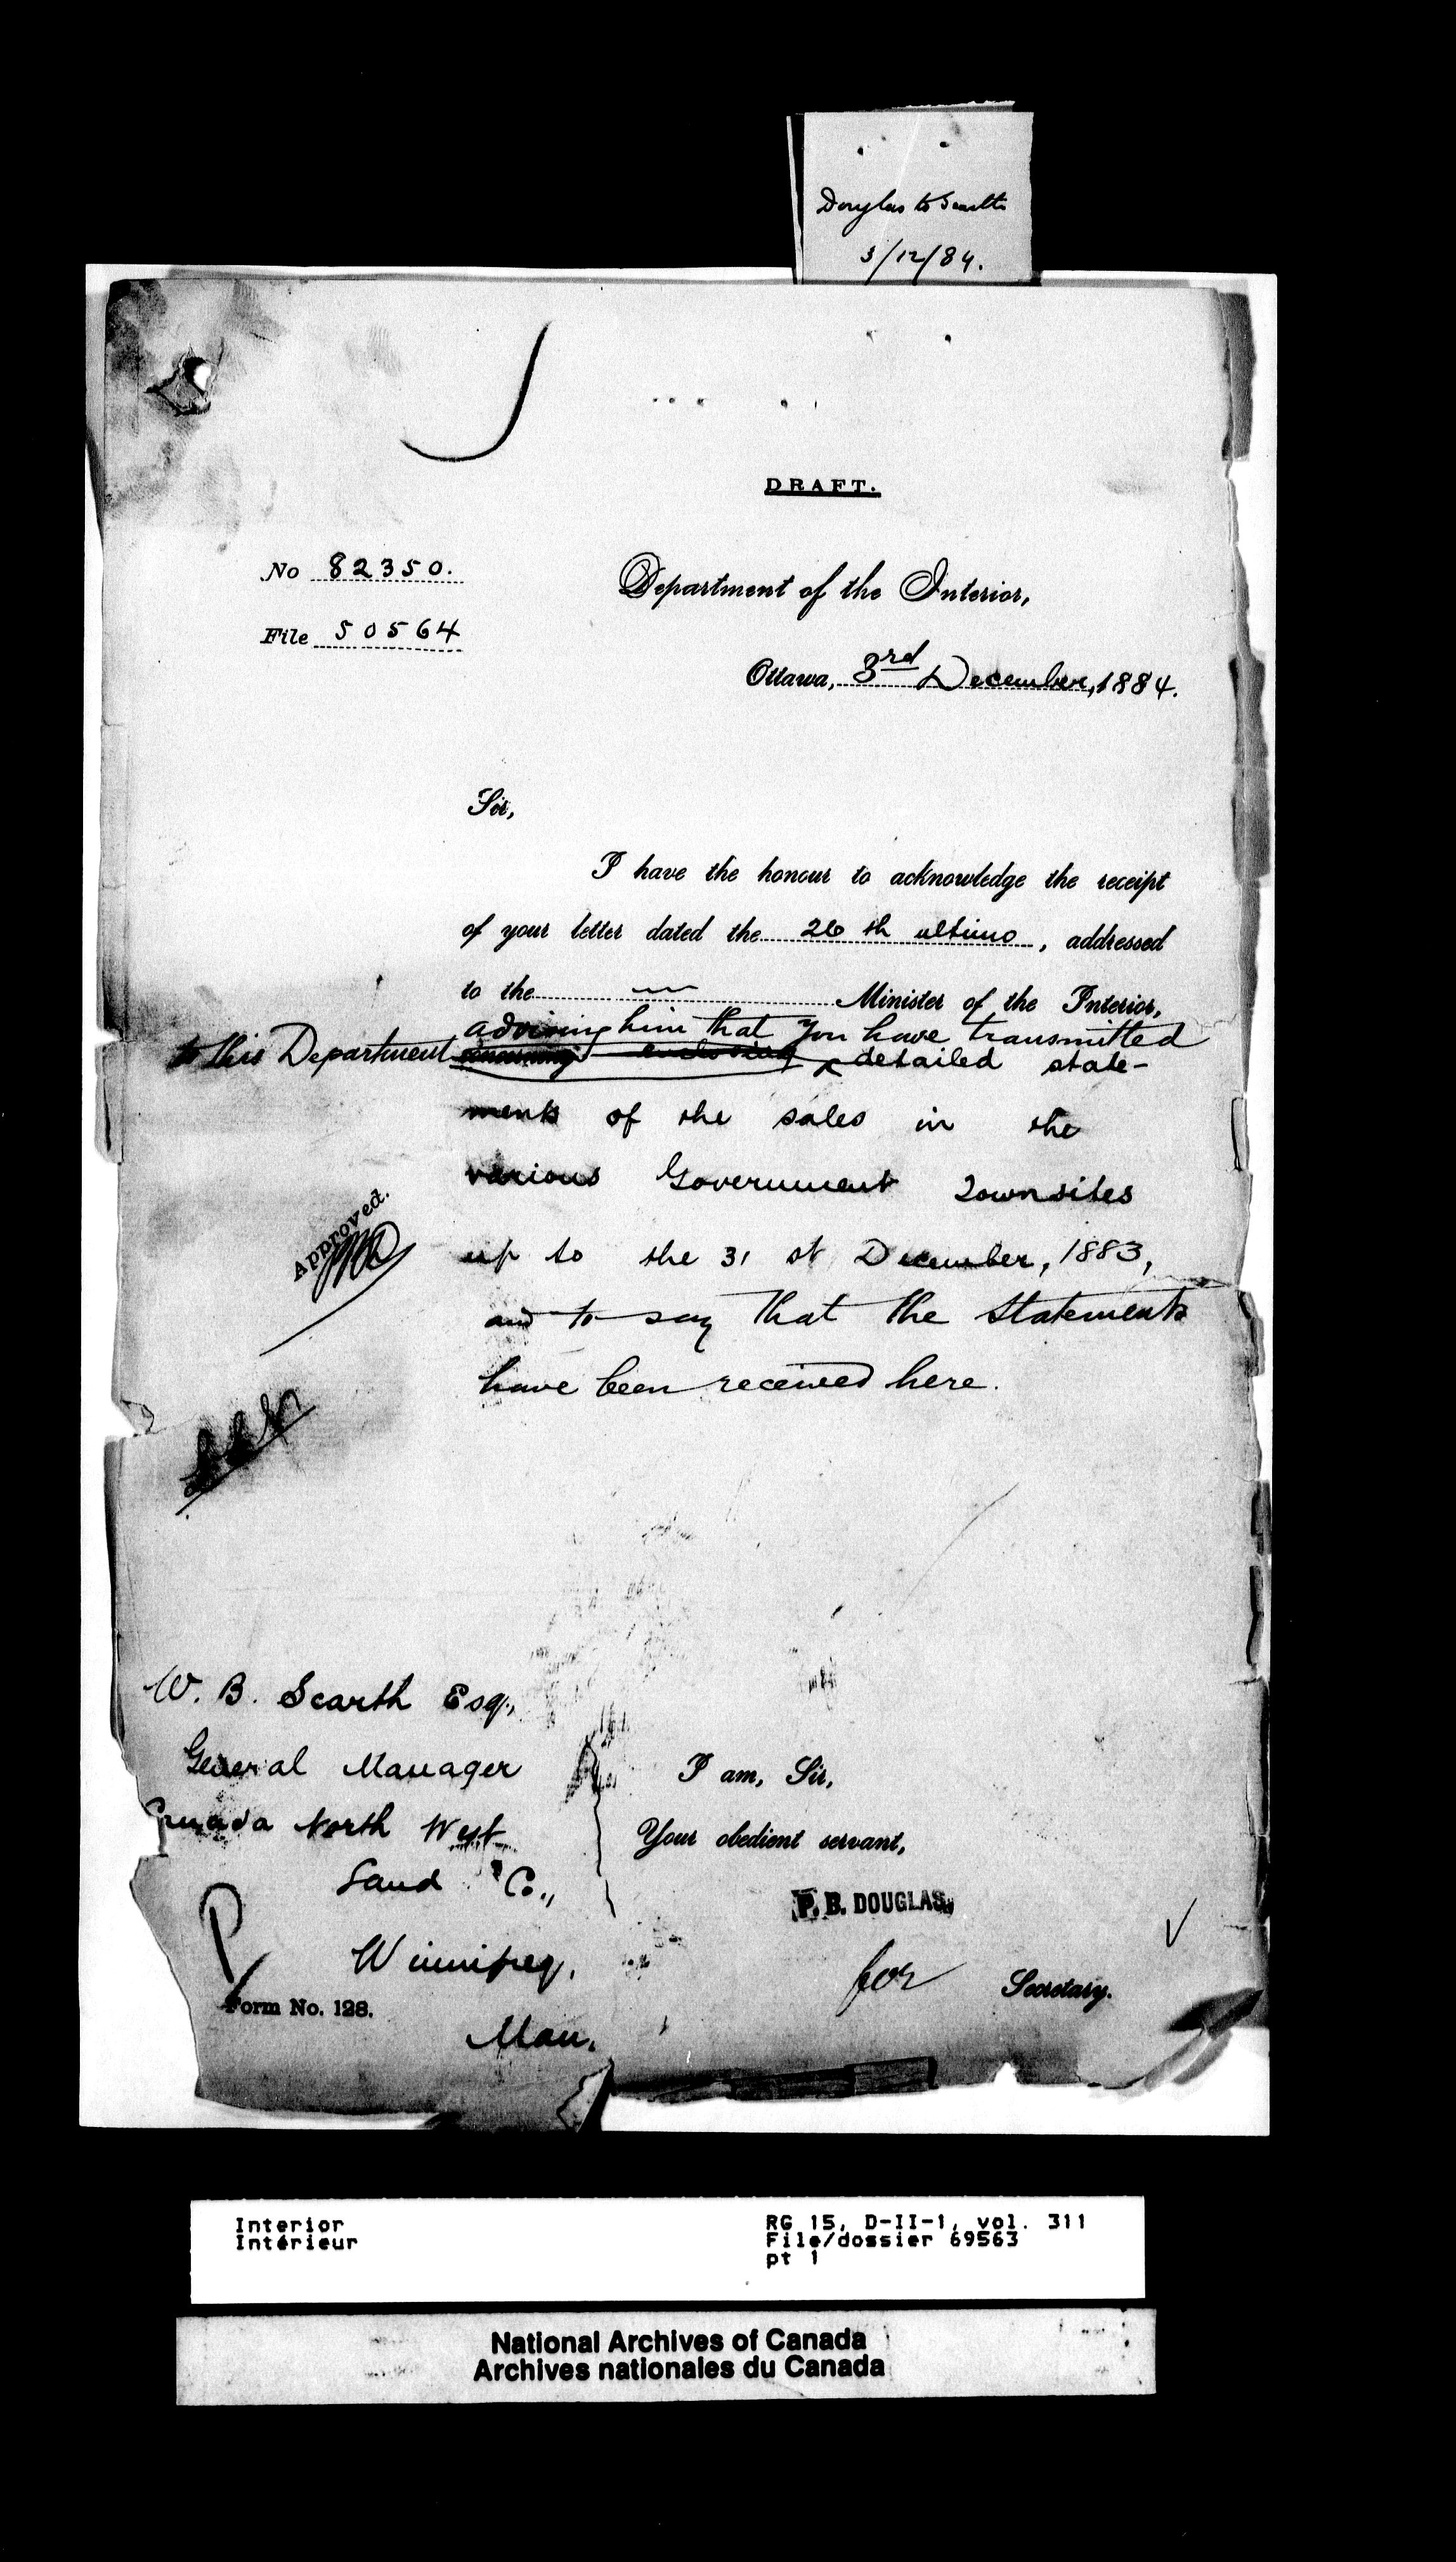 Douglas to Scarth
3/12/84.
DRAFT.
No 82350.
File 50564
Department of the Interior,
Ottawa, 3rd December, 1884.
Sir,
I have the honour to acknowledge the receipt
of your letter dated the 26th ultimo, addressed
to the Minister of the Interior,
advising him that you have transmitted
to this Department concerning enclosing detailed state-
ments of the sales in the
various Government Townsites
up to the 31st December, 1883,
and to say that the statements
have been received here.
Approved.
W. B. Scarth Esq.,
General Manager
Canada North West
Land Co.,
Winnipeg,
Man.
I am, Sir,
Your obedient servant,
P. B. DOUGLAS,
for Secretary.
Form No. 128.
Interior
Intérieur
RG 15, D-II-1, vol. 311
File/dossier 69563
pt 1
National Archives of Canada
Archives nationales du Canada